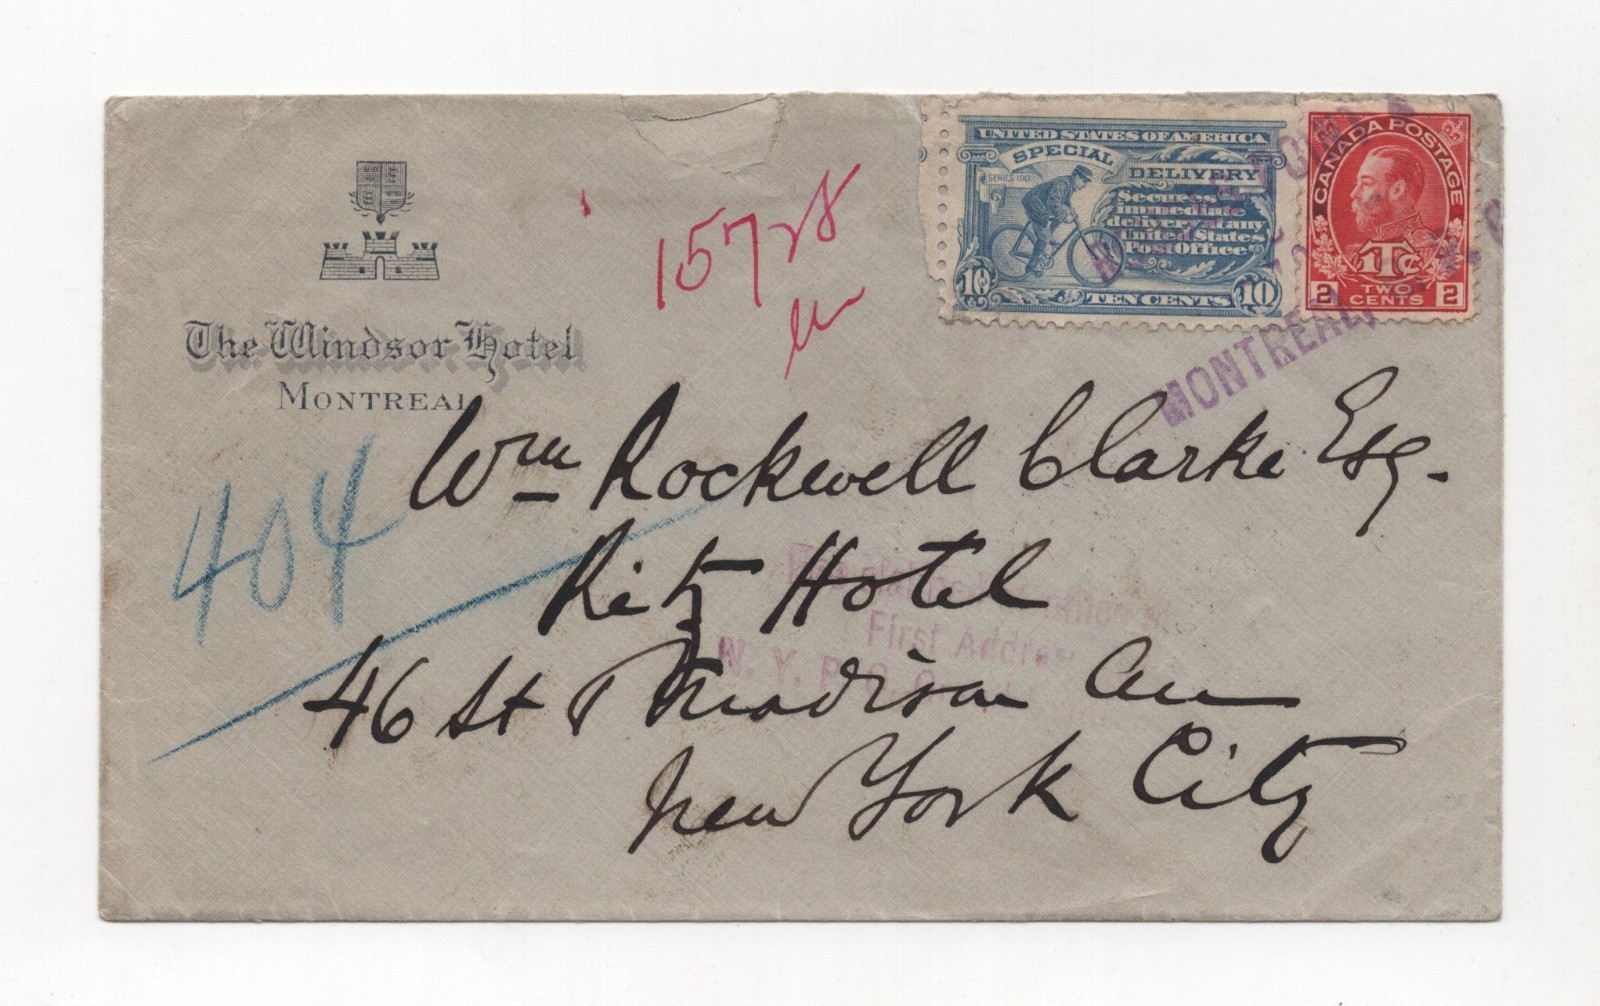 The Windsor Hotel
MONTREAL
15728
UNITED STATES OF AMERICA
SPECIAL
DELIVERY
SERIES 1902
Secures
immediate
delivery at any
United States
Post Office
10
TEN CENTS
10
CANADA POSTAGE
1Tc
2
TWO
CENTS
2
MONTREAL
404
Wm Rockwell Clarke Esq.
Ritz Hotel
46 St & Madison Av
New York City
First Address
N. Y. P. O.